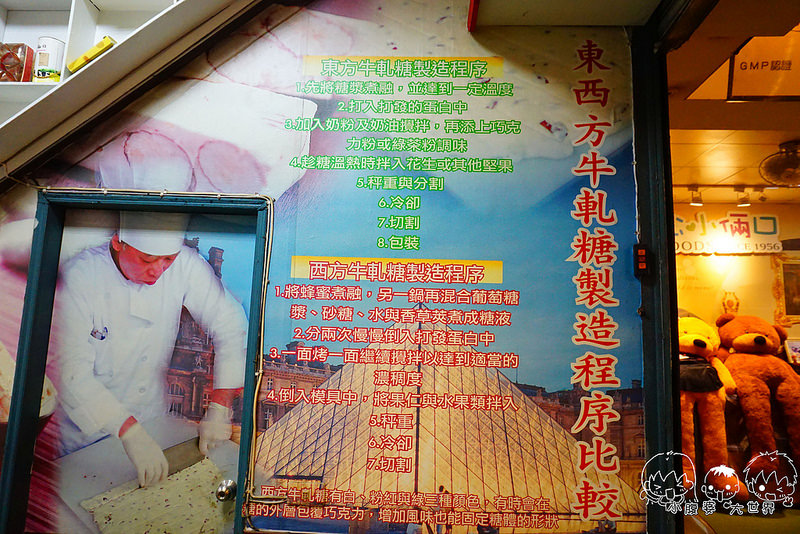 東西方牛軋糖製造程序比較
東方牛軋糖製造程序
1.先將糖漿煮融，並達到一定溫度
2.打入打發的蛋白中
3.加入奶粉及奶油攪拌，再添上巧克
力粉或綠茶粉調味
4.趁糖溫熱時拌入花生或其他堅果
5.秤重與分割
6.冷卻
7.切割
8.包裝
西方牛軋糖製造程序
1.將蜂蜜煮融，另一鍋再混合葡萄糖
漿、砂糖、水與香草莢煮成糖液
2.分兩次慢慢倒入打發蛋白中
3.一面烤一面繼續攪拌以達到適當的
濃稠度
4.倒入模具中，將果仁與水果類拌入
5.秤重
6.冷卻
7.切割
西方牛軋糖有白、粉紅與綠三種顏色，有時會在
糖的外層包覆巧克力，增加風味也能固定糖體的形狀
GMP認證
小倆口
SINCE 1956
小腹婆 大世界